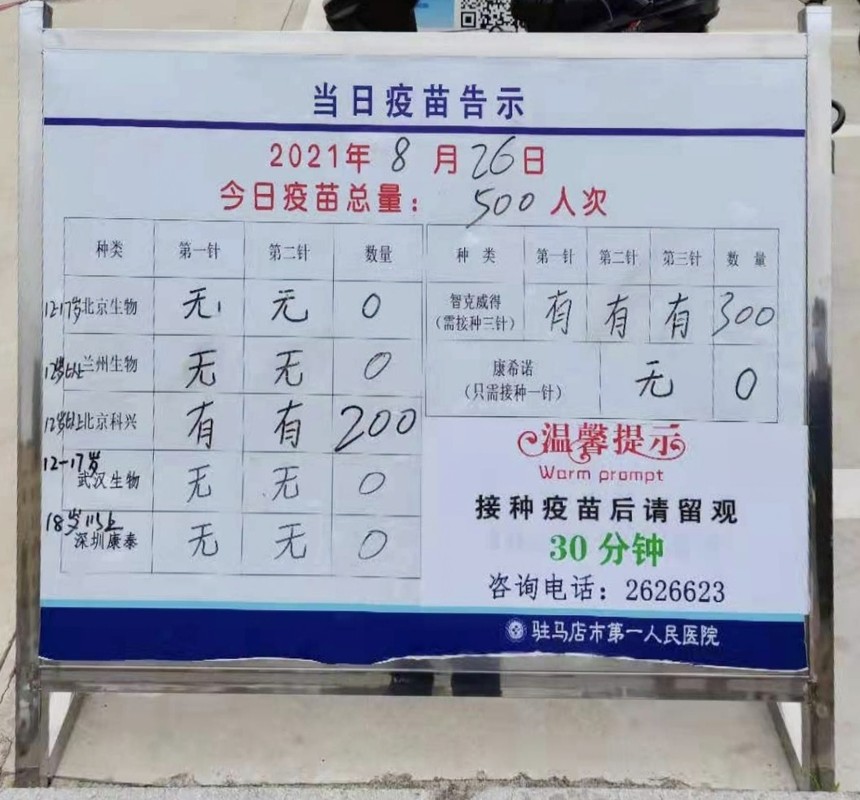 当日疫苗告示
2021年 8 月 26日
今日疫苗总量： 500 人次
种类 第一针 第二针 数量
12-17岁 北京生物 无 无 0
12岁以上 兰州生物 无 无 0
12岁以上 北京科兴 有 有 200
12-17岁 武汉生物 无 无 0
18岁以上 深圳康泰 无 无 0
种 类 第一针 第二针 第三针 数 量
智克威得
（需接种三针） 有 有 有 300
康希诺
（只需接种一针） 无 0
温馨提示
Warm prompt
接种疫苗后请留观
30 分钟
咨询电话：2626623
驻马店市第一人民医院